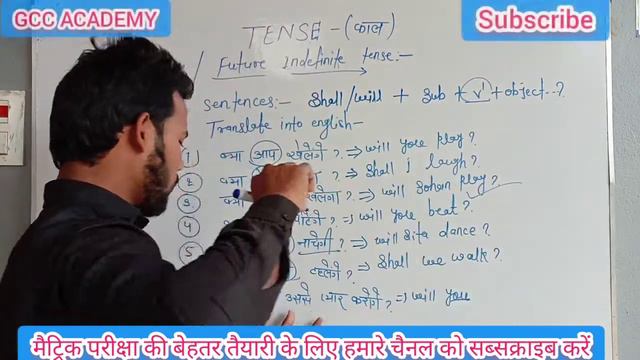 GCC ACADEMY
Subscribe
TENSE - (काल)
Future Indefinite tense:-
Sentences:- Shall/will + Sub + v¹ + object..?
Translate into english-
1 क्या आप खेलेंगे? ⇒ will you play?
2 क्या ? ⇒ Shall I laugh?
3 क्या खेलेगा? ⇒ will Sohan play?
4 ? ⇒ will you beat?
5 नाचेगी? ⇒ will Sita dance?
टहलेंगे? ⇒ Shall we walk?
उससे प्यार करोगे? ⇒ will you
मैट्रिक परीक्षा की बेहतर तैयारी के लिए हमारे चैनल को सब्सक्राइब करें